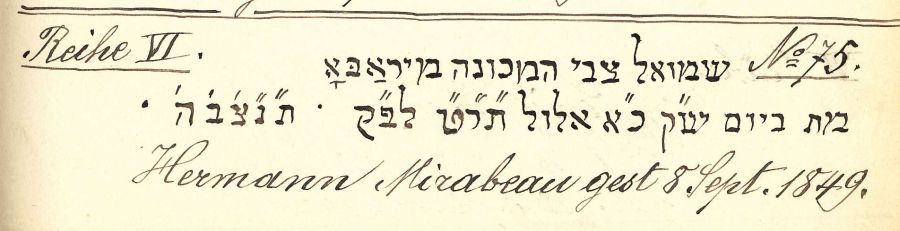 Reihe VI. שמואל צבי המכונה מיראַבּאָ No 75.
מת ביום ש״ק כ״א אלול ת״ר״ט לפ״ק · ת׳נ׳צ׳ב׳ה׳ ·
Hermann Mirabeau gest 8 Sept. 1849.